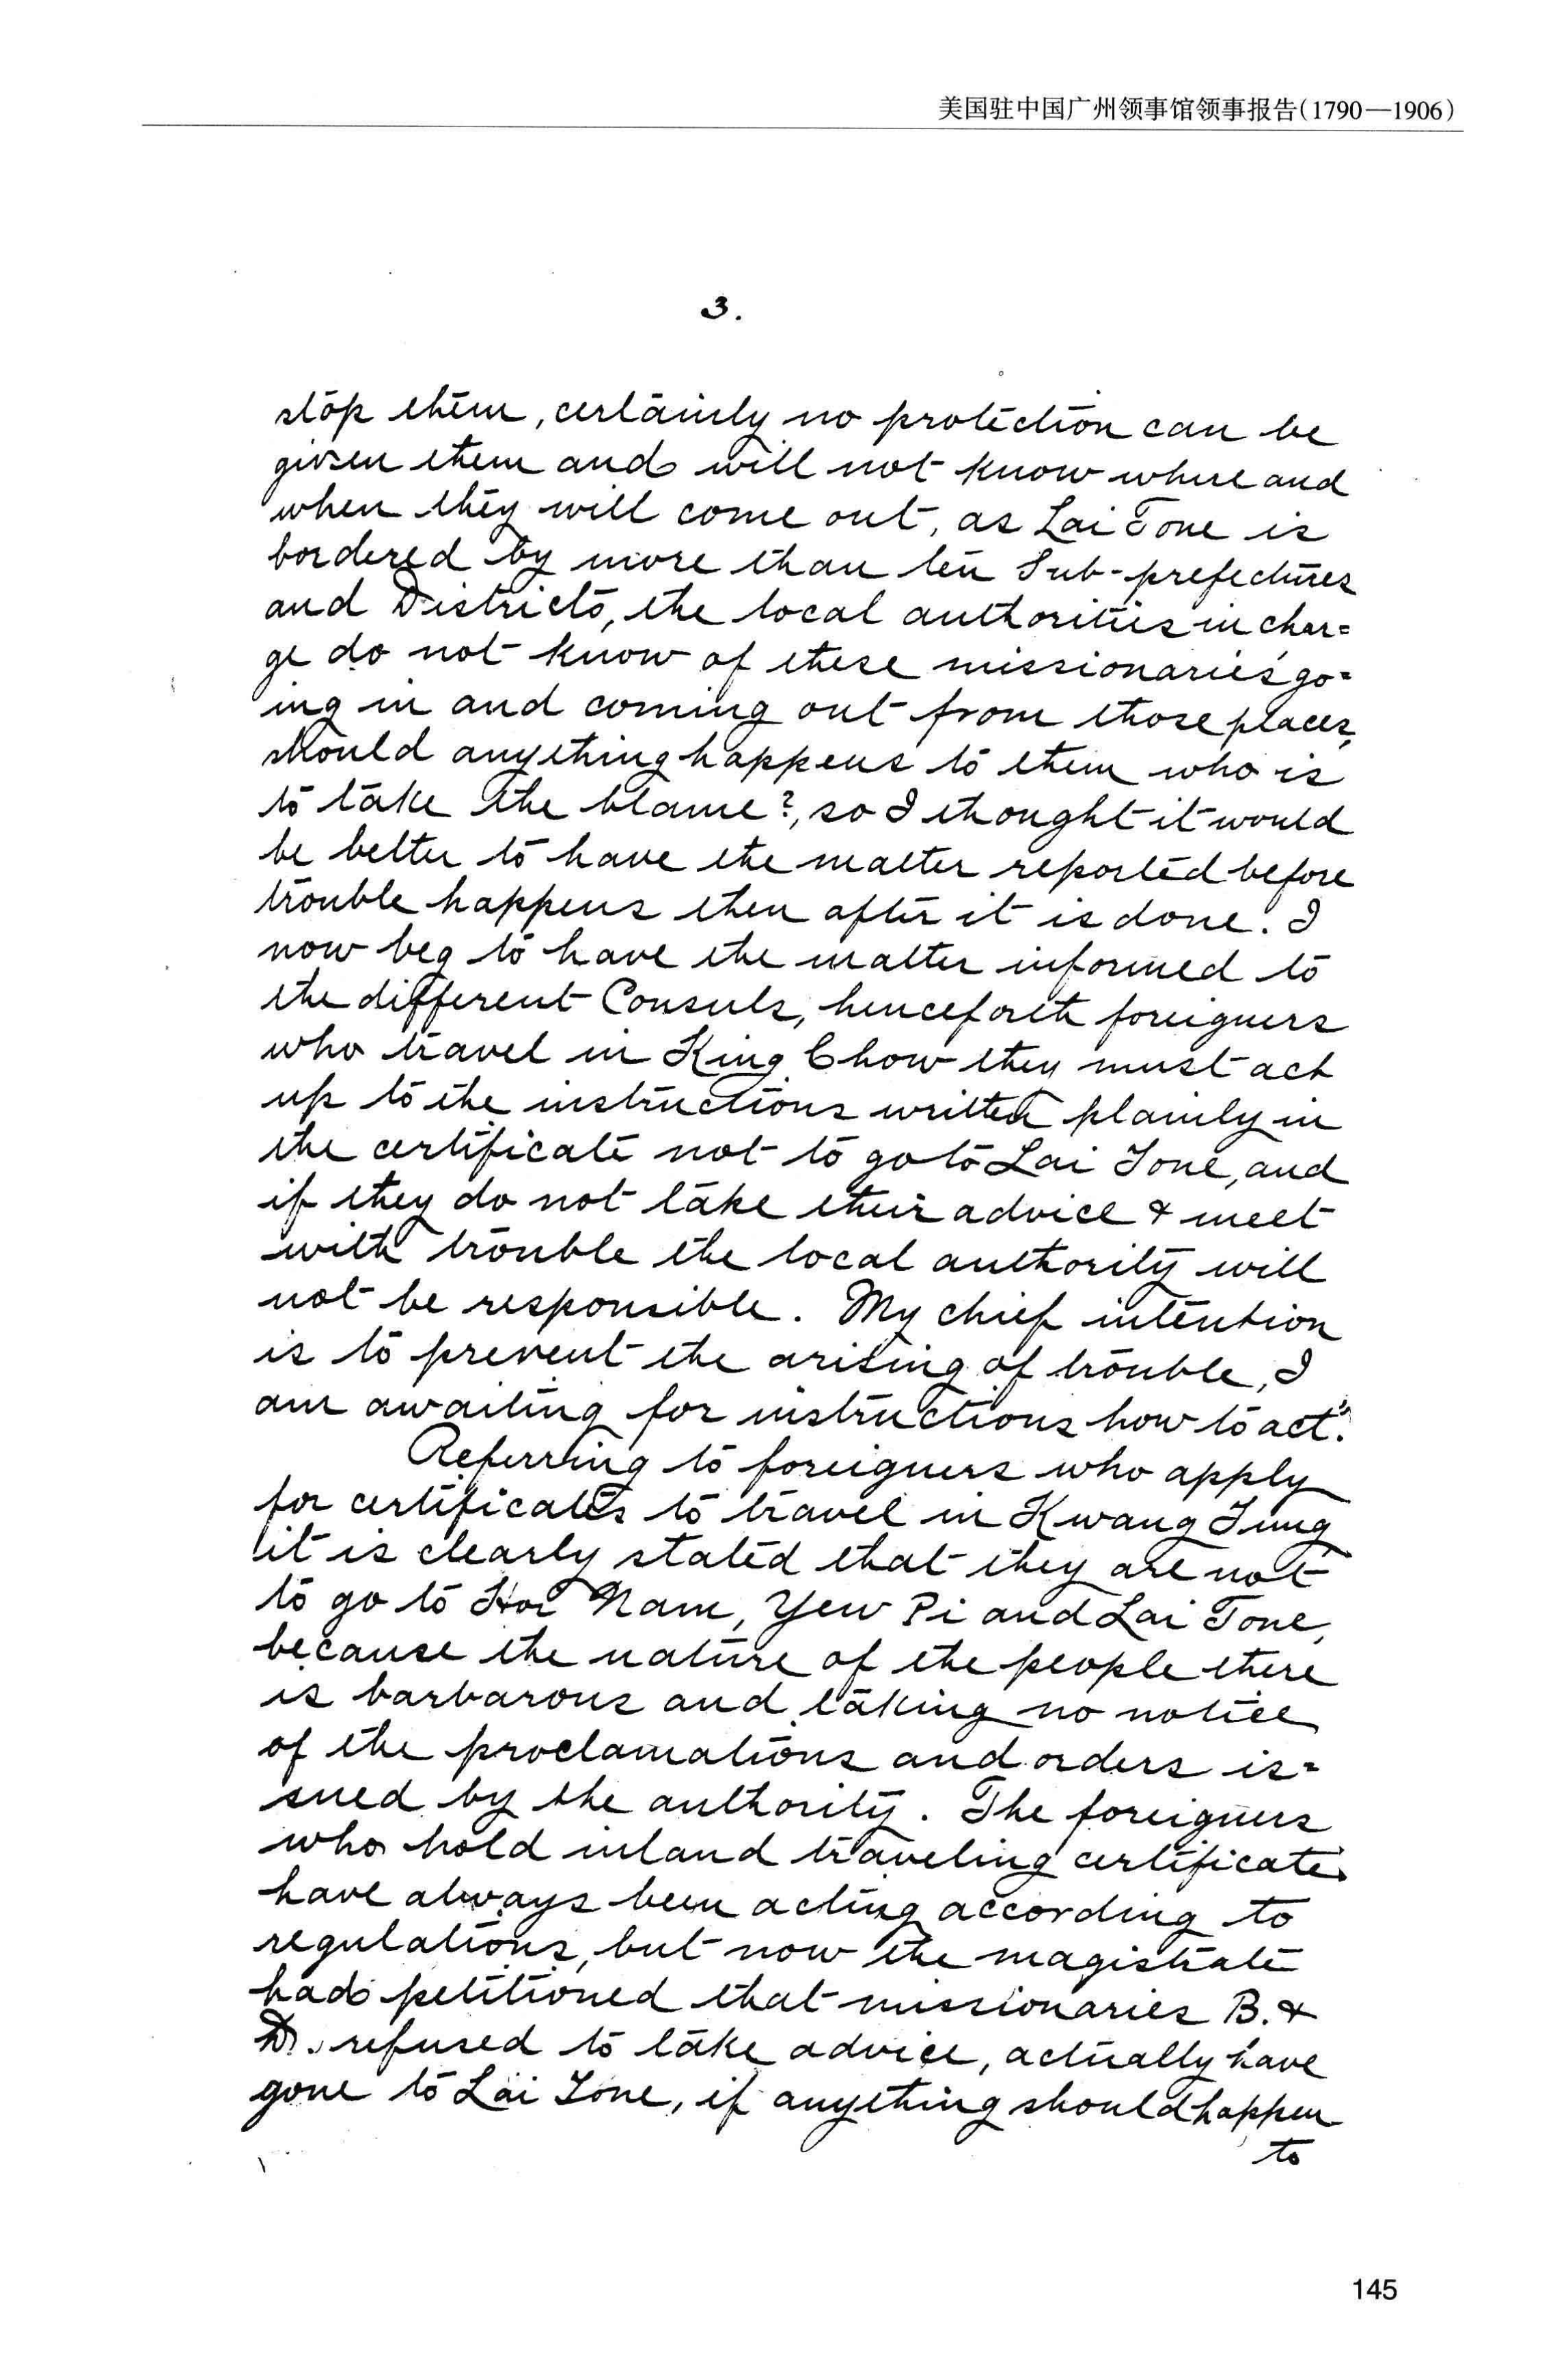 美国驻中国广州领事馆领事报告(1790—1906)
3.
stop them, certainly no protection can be
given them and will not know where and
when they will come out, as Lai Tone is
bordered by more than ten Sub-prefectures
and Districts, the local authorities in char=
ge do not know of these missionaries' go=
ing in and coming out from those places,
should anything happens to them who is
to take the blame?, so I thought it would
be better to have the matter reported before
trouble happens then after it is done. I
now beg to have the matter informed to
the different Consuls, henceforth foreigners
who travel in King Chow they must act
up to the instructions written plainly in
the certificate not to go to Lai Tone, and
if they do not take their advice & meet
with trouble the local authority will
not be responsible. My chief intention
is to prevent the arising of trouble, I
am awaiting for instructions how to act."
Referring to foreigners who apply
for certificates to travel in Kwang Tung
it is clearly stated that they are not
to go to Hoi Nam, Yew Pi and Lai Tone,
because the nature of the people there
is barbarous and taking no notice
of the proclamations and orders is=
sued by the authority. The foreigners
who hold inland traveling certificates
have always been acting according to
regulations, but now the magistrate
had petitioned that missionaries B. &
D. refused to take advice, actually have
gone to Lai Tone, if anything should happen
to
145